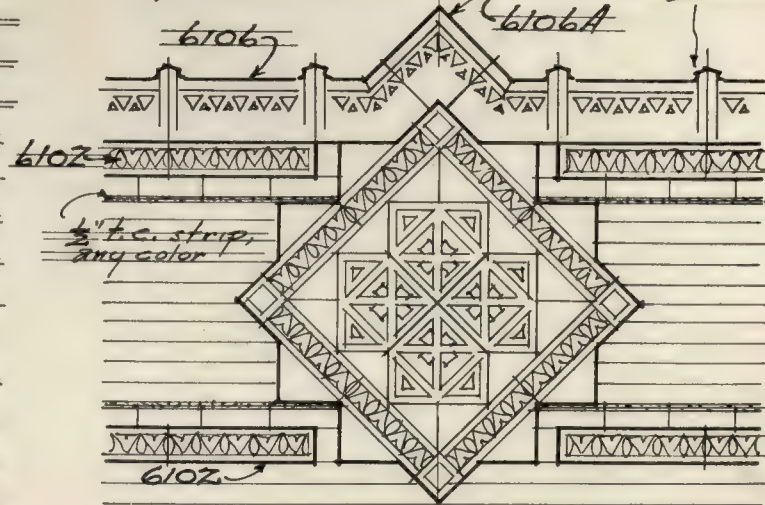 6106
6106A
6102
½" t.c. strip,
any color
6102